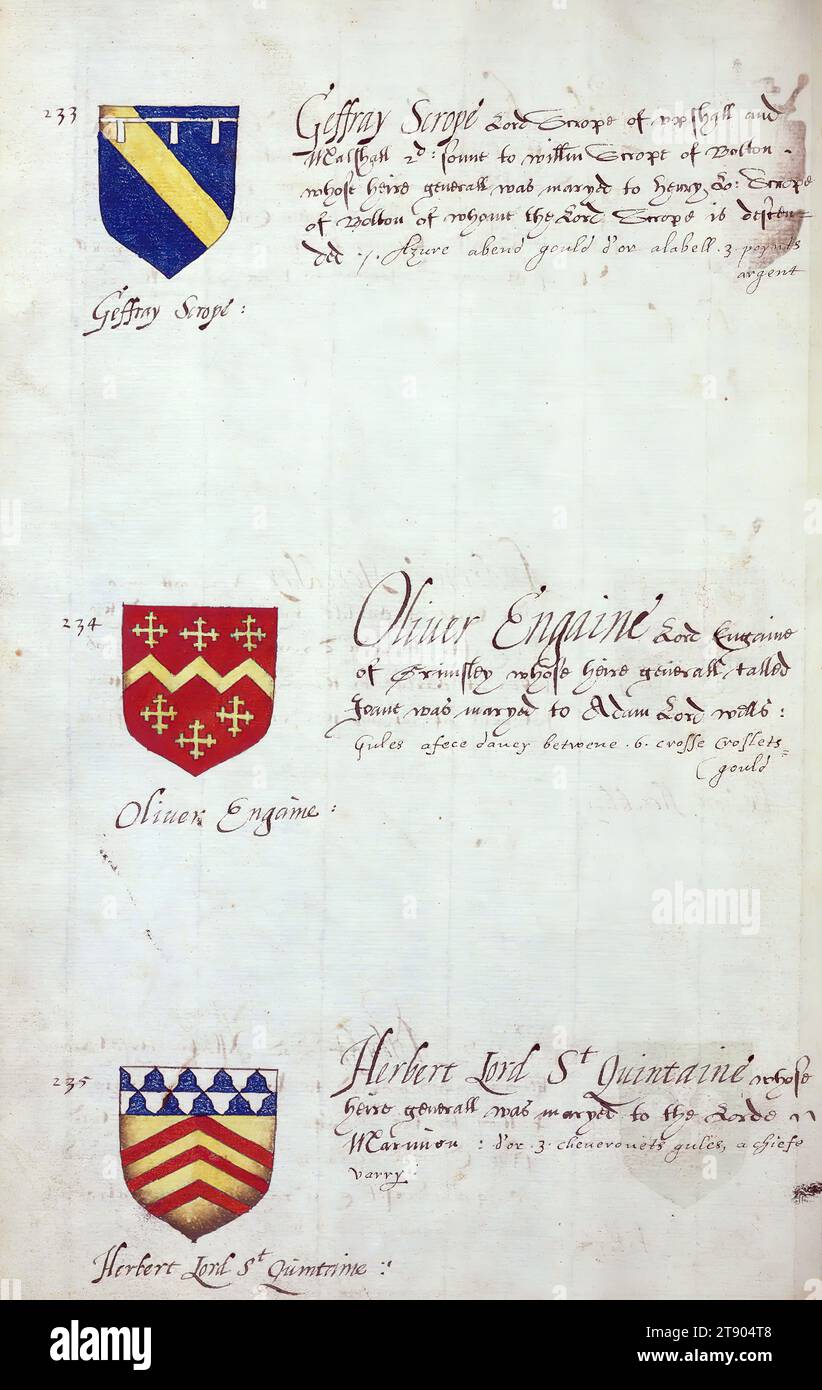 233
Geffray Scrope Lord Scrope of upshall and
Malshall 2d: sonne to willm Scrope of Bolton.
whose heire generall was maryed to Henry Lo: Scrope
of Bolton of whome the Lord Scrope is descen=
ded ./. Azure abend gould d'or alabell .3. poynts
argent
Geffray Scrope :
234
Oliver Engaine Lord Engaine
of Grimsley whose heire generall called
Joane was maryed to Adam Lord wells :
Gules afece dancy betwene .6. crosse Croslets=
(gould
Oliver Engaine :
235
Herbert Lord St Quintaine whose
heire generall was maryed to the Lorde
Marmion : d'or .3. cheveronets gules, a chiefe
varry.
Herbert Lord St Quintaine :
alamy
alamy
alamy
Image ID: 2T904T8
www.alamy.com